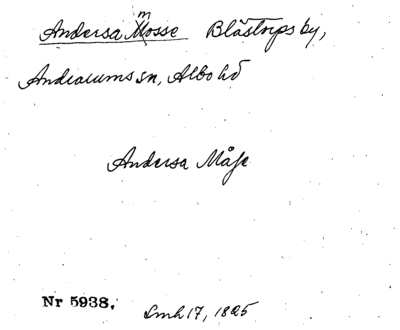 Andersa Mosse Blåstorps by,
Andrarums sn, Albo hd
Andersa Måse
Nr 5938.
Lmh 17, 1825